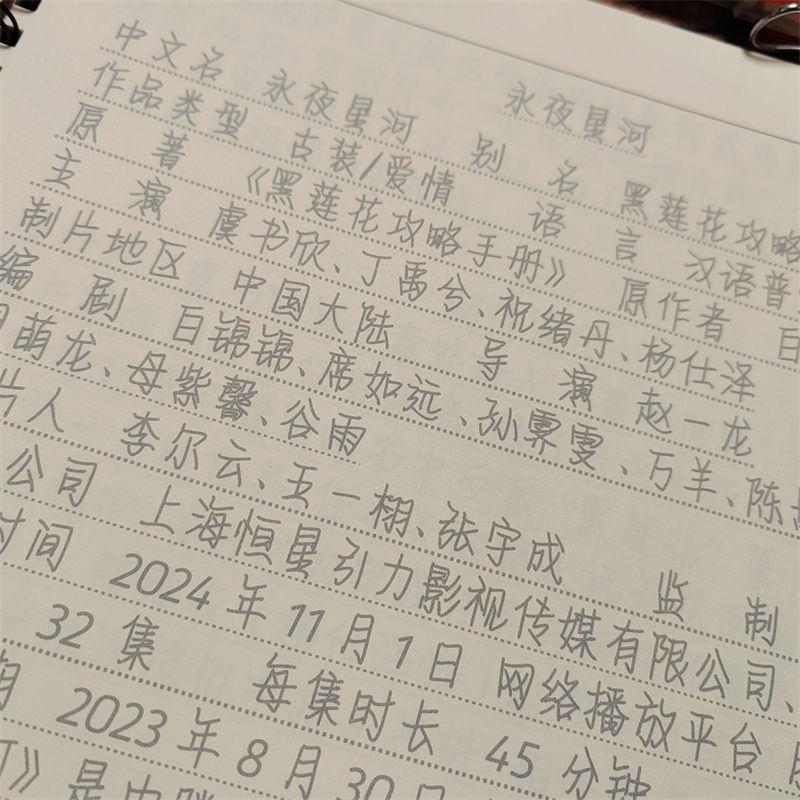 永夜星河
中文名 永夜星河 别 名 黑莲花攻略
作品类型 古装/爱情 语 言 汉语普
原 著 《黑莲花攻略手册》 原作者
主 演 虞书欣、丁禹兮、祝绪丹、杨仕泽
制片地区 中国大陆 导 演 赵一龙
编 剧 白锦锦、席如远、孙霁雯、万羊、陈
萌龙、母紫馨、谷雨
片人 李尔云、王一栩、张宇成 监 制
公司 上海恒星引力影视传媒有限公司、
时间 2024年11月1日 网络播放平台
32集 每集时长 45分钟
期 2023年8月30日
》是由